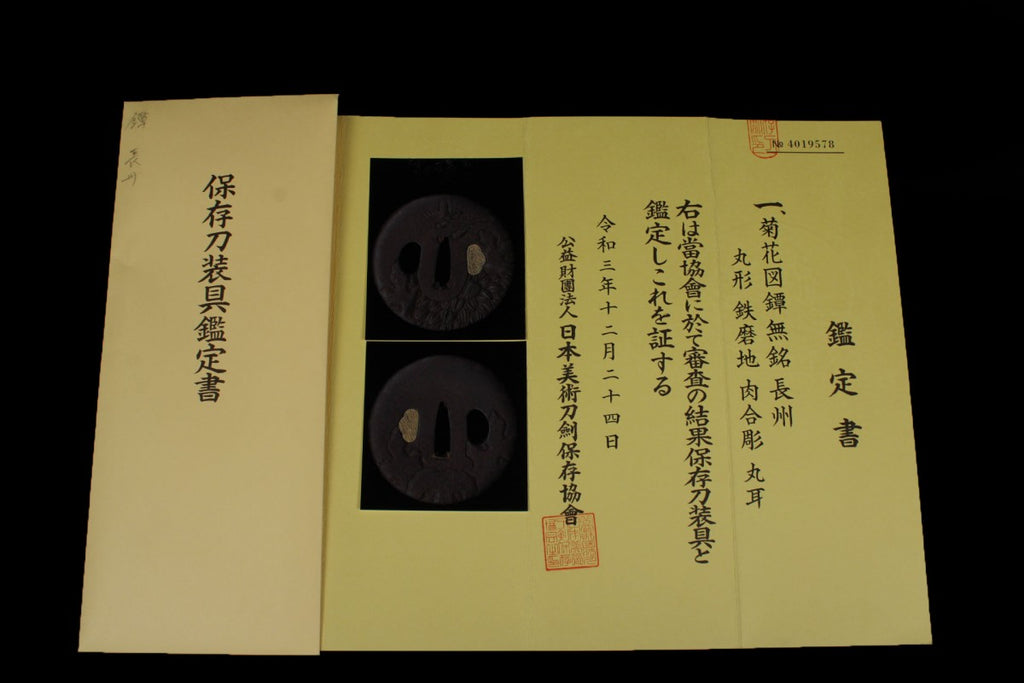 鑑定書
№ 4019578
一、菊花図鐔 無銘 長州
丸形 鉄磨地 肉合彫 丸耳
右は當協會に於て審査の結果保存刀装具と
鑑定しこれを証する
令和三年十二月二十四日
公益財團法人 日本美術刀劍保存協會
保存刀装具鑑定書
鐔 長州